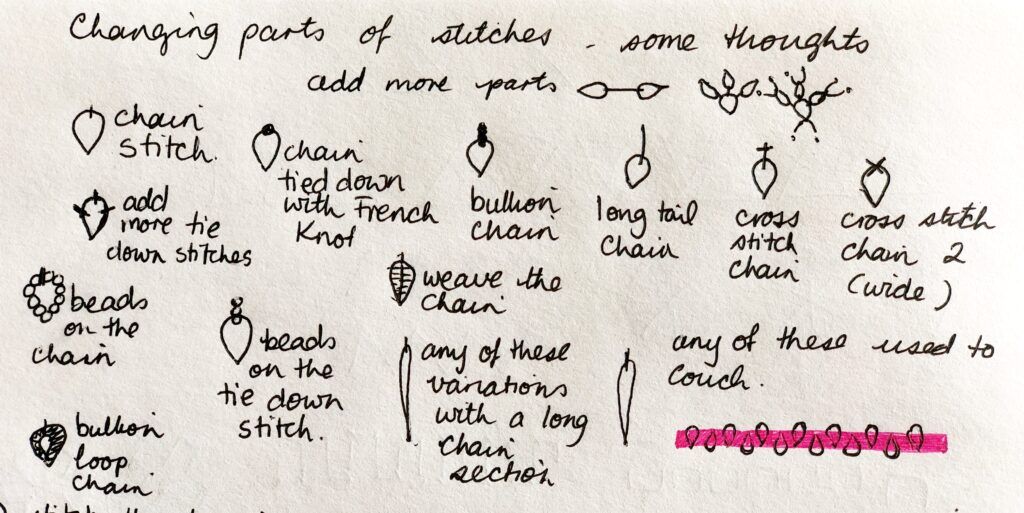 Changing parts of stitches - some thoughts
add more parts
chain
stitch.
chain
tied down
with French
Knot
bullion
chain
long tail
chain
cross
stitch
chain
cross stitch
chain 2
(wide)
add
more tie
down stitches
beads
on the
chain
beads
on the
tie down
stitch.
weave the
chain
any of these
variations
with a long
chain
section
any of these used to
couch.
bullion
loop
chain